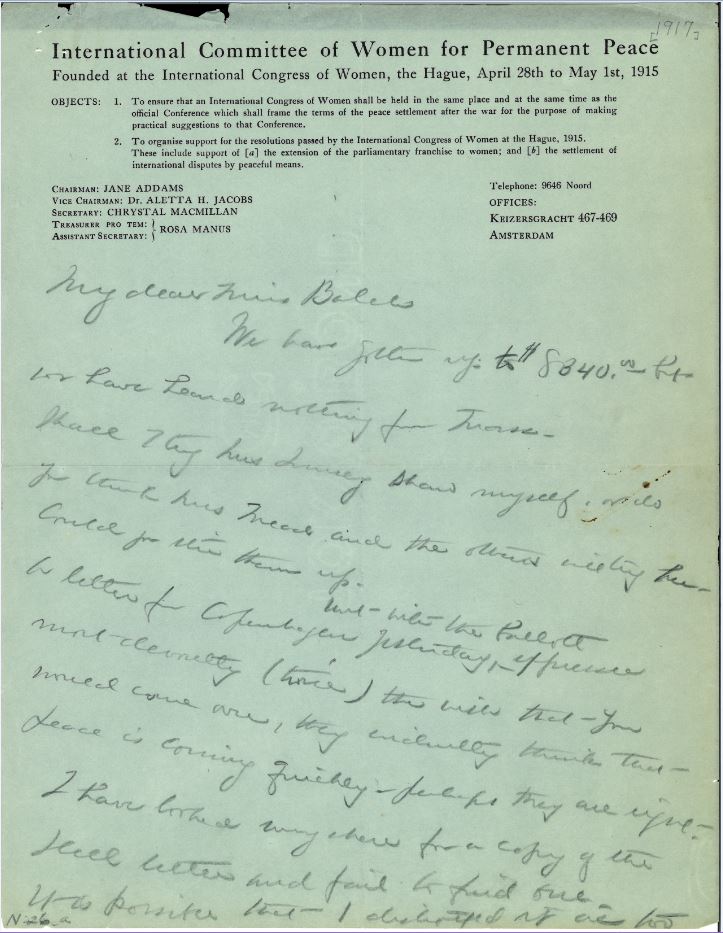 [1917]
International Committee of Women for Permanent Peace
Founded at the International Congress of Women, the Hague, April 28th to May 1st, 1915
OBJECTS: 1. To ensure that an International Congress of Women shall be held in the same place and at the same time as the
official Conference which shall frame the terms of the peace settlement after the war for the purpose of making
practical suggestions to that Conference.
2. To organise support for the resolutions passed by the International Congress of Women at the Hague, 1915.
These include support of [a] the extension of the parliamentary franchise to women; and [b] the settlement of
international disputes by peaceful means.
CHAIRMAN: JANE ADDAMS
VICE CHAIRMAN: Dr. ALETTA H. JACOBS
SECRETARY: CHRYSTAL MACMILLAN
TREASURER PRO TEM:
ASSISTANT SECRETARY: ROSA MANUS
Telephone: 9646 Noord
OFFICES:
KEIZERSGRACHT 467-469
AMSTERDAM
My dear Miss Balch
We have gotten up to $8340.00 but
we have heard nothing from Mass-
Shall I try Mrs myself, or do
you think Mrs Mead and the others
Could you stir them up.
the
letter from Copenhagen yesterday, expresses
most (twice) the wish that you
would come over, they evidently think that
peace is coming quickly - perhaps they are right.
I have looked everywhere for a copy of the
letter and fail to find one.
It is possible that I destroyed it as too
N-26-a